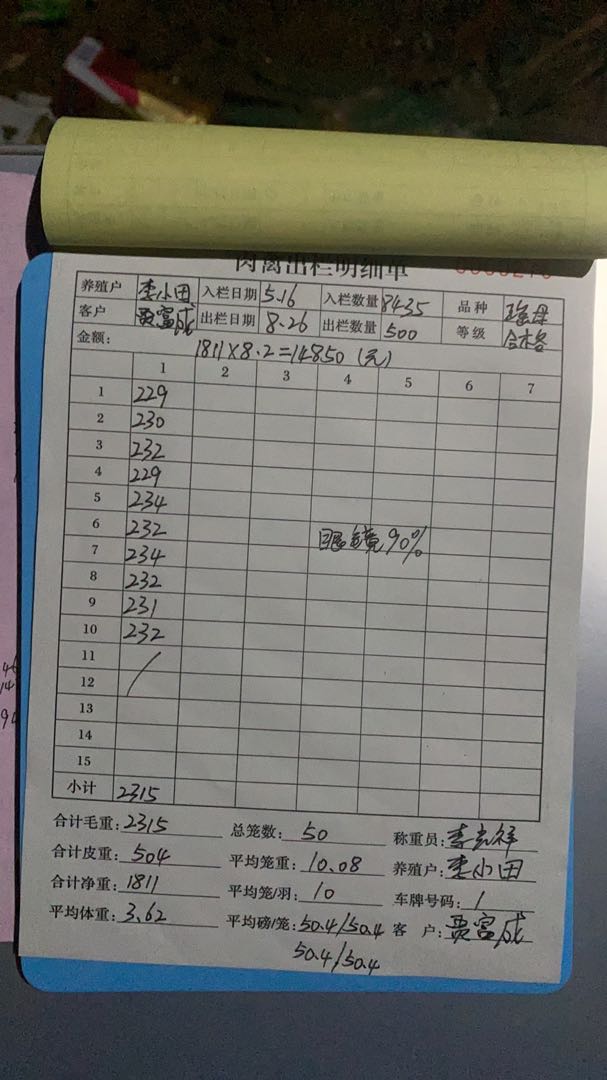 肉禽出栏明细单
养殖户 李小田 入栏日期 5.16 入栏数量 8435 品种
客户 贾富成 出栏日期 8.26 出栏数量 500 等级 合格
金额： 1811×8.2=14850(元)
1 2 3 4 5 6 7
1 229
2 230
3 232
4 229
5 234
6 232 眼镜90%
7 234
8 232
9 231
10 232
11
12
13
14
15
小计 2315
合计毛重：2315 总笼数：50 称重员：李宏祥
合计皮重：504 平均笼重：10.08 养殖户：李小田
合计净重：1811 平均笼/羽：10 车牌号码：/
平均体重：3.62 平均磅/笼：50.4/50.4 客 户：贾富成
50.4/50.4